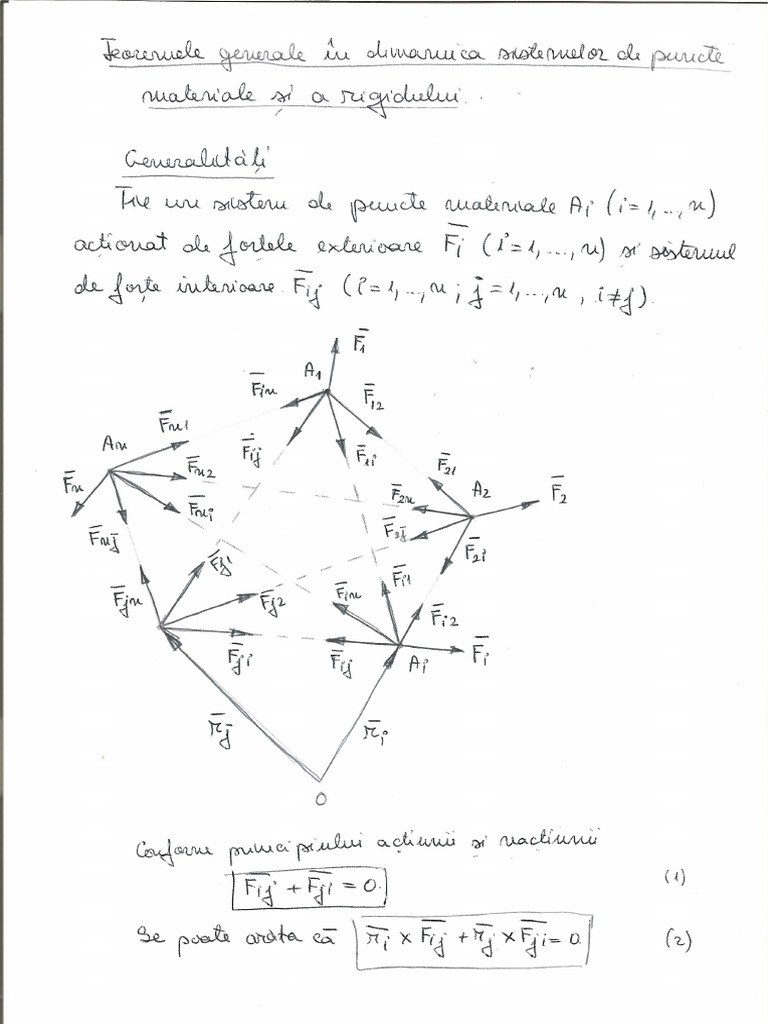 Teoremele generale în dinamica sistemelor de puncte
materiale și a rigidului.
Generalități
Fie un sistem de puncte materiale Ai (i=1,...,n)
acționat de forțele exterioare F̄i (i=1,...,n) și sistemul
de forțe interioare F̄ij (i=1,...,n; j=1,...,n, i≠j).
F̄1
A1
F̄1n
F̄12
F̄n1
F̄1j
F̄1i
An
F̄n2
F̄21
A2
F̄n
F̄ni
F̄2n
F̄2
F̄nj
F̄2j
F̄2i
F̄j1
F̄i1
F̄jn
F̄j2
F̄in
F̄i2
F̄ji
F̄ij
Ai
F̄i
r̄j
r̄i
O
Conform principiului acțiunii și reacțiunii
F̄ij + F̄ji = 0. (1)
Se poate arăta că r̄i × F̄ij + r̄j × F̄ji = 0. (2)